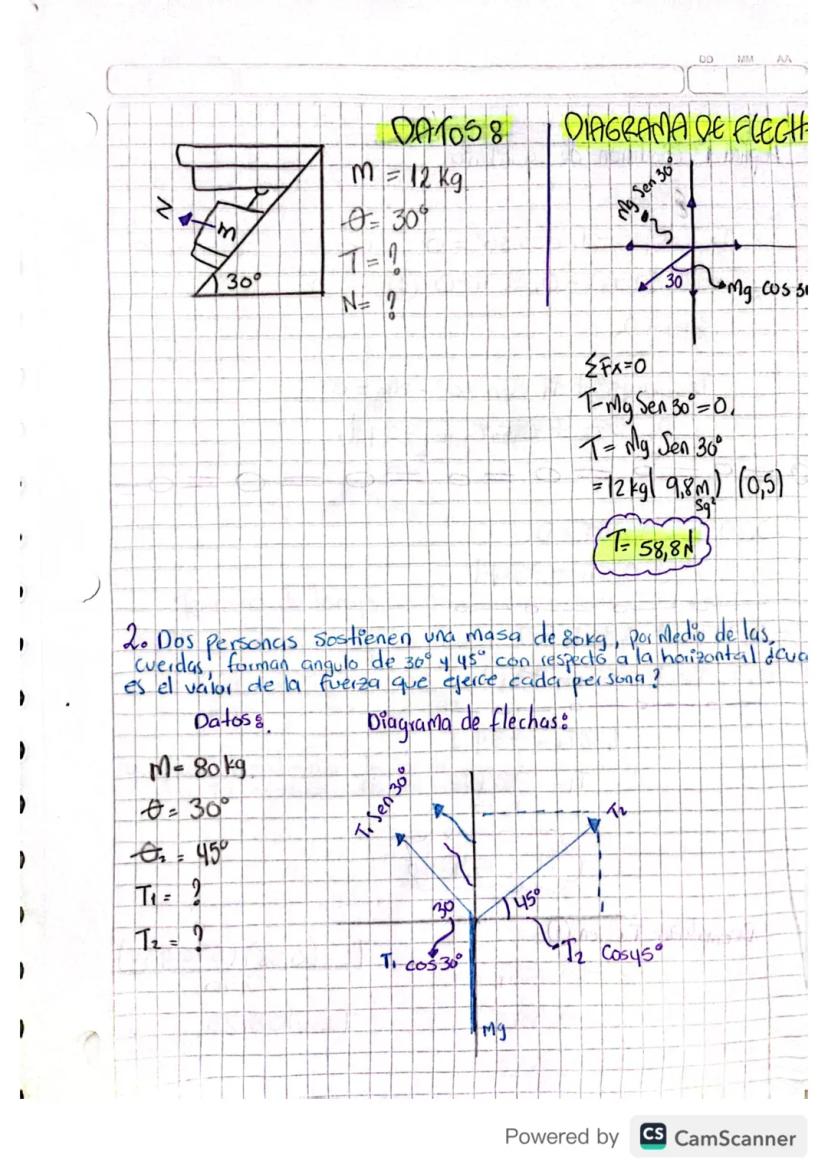 DD MM AA
DATOS 8
DIAGRAMA DE FLECH
m = 12 kg
θ = 30°
T = ?
N = ?
N
m
30°
Mg Sen 30°
30
Mg cos 30
ΣFx=0
T-Mg Sen 30°=0.
T= Mg Sen 30°
=12 kg( 9,8m/sg²) (0,5)
T= 58,8N
2. Dos personas sostienen una masa de 80kg, por Medio de las,
cuerdas, forman angulo de 30° y 45° con respecto a la horizontal ¿cua
es el valor de la fuerza que ejerce cada persona?
Datos:
Diagrama de flechas:
M= 80 kg
θ = 30°
θ₂ = 45°
T₁ = ?
T₂ = ?
T₁ Sen 30°
T₂
30
45°
T₁ cos 30°
T₂ Cos 45°
Mg
Powered by CS CamScanner